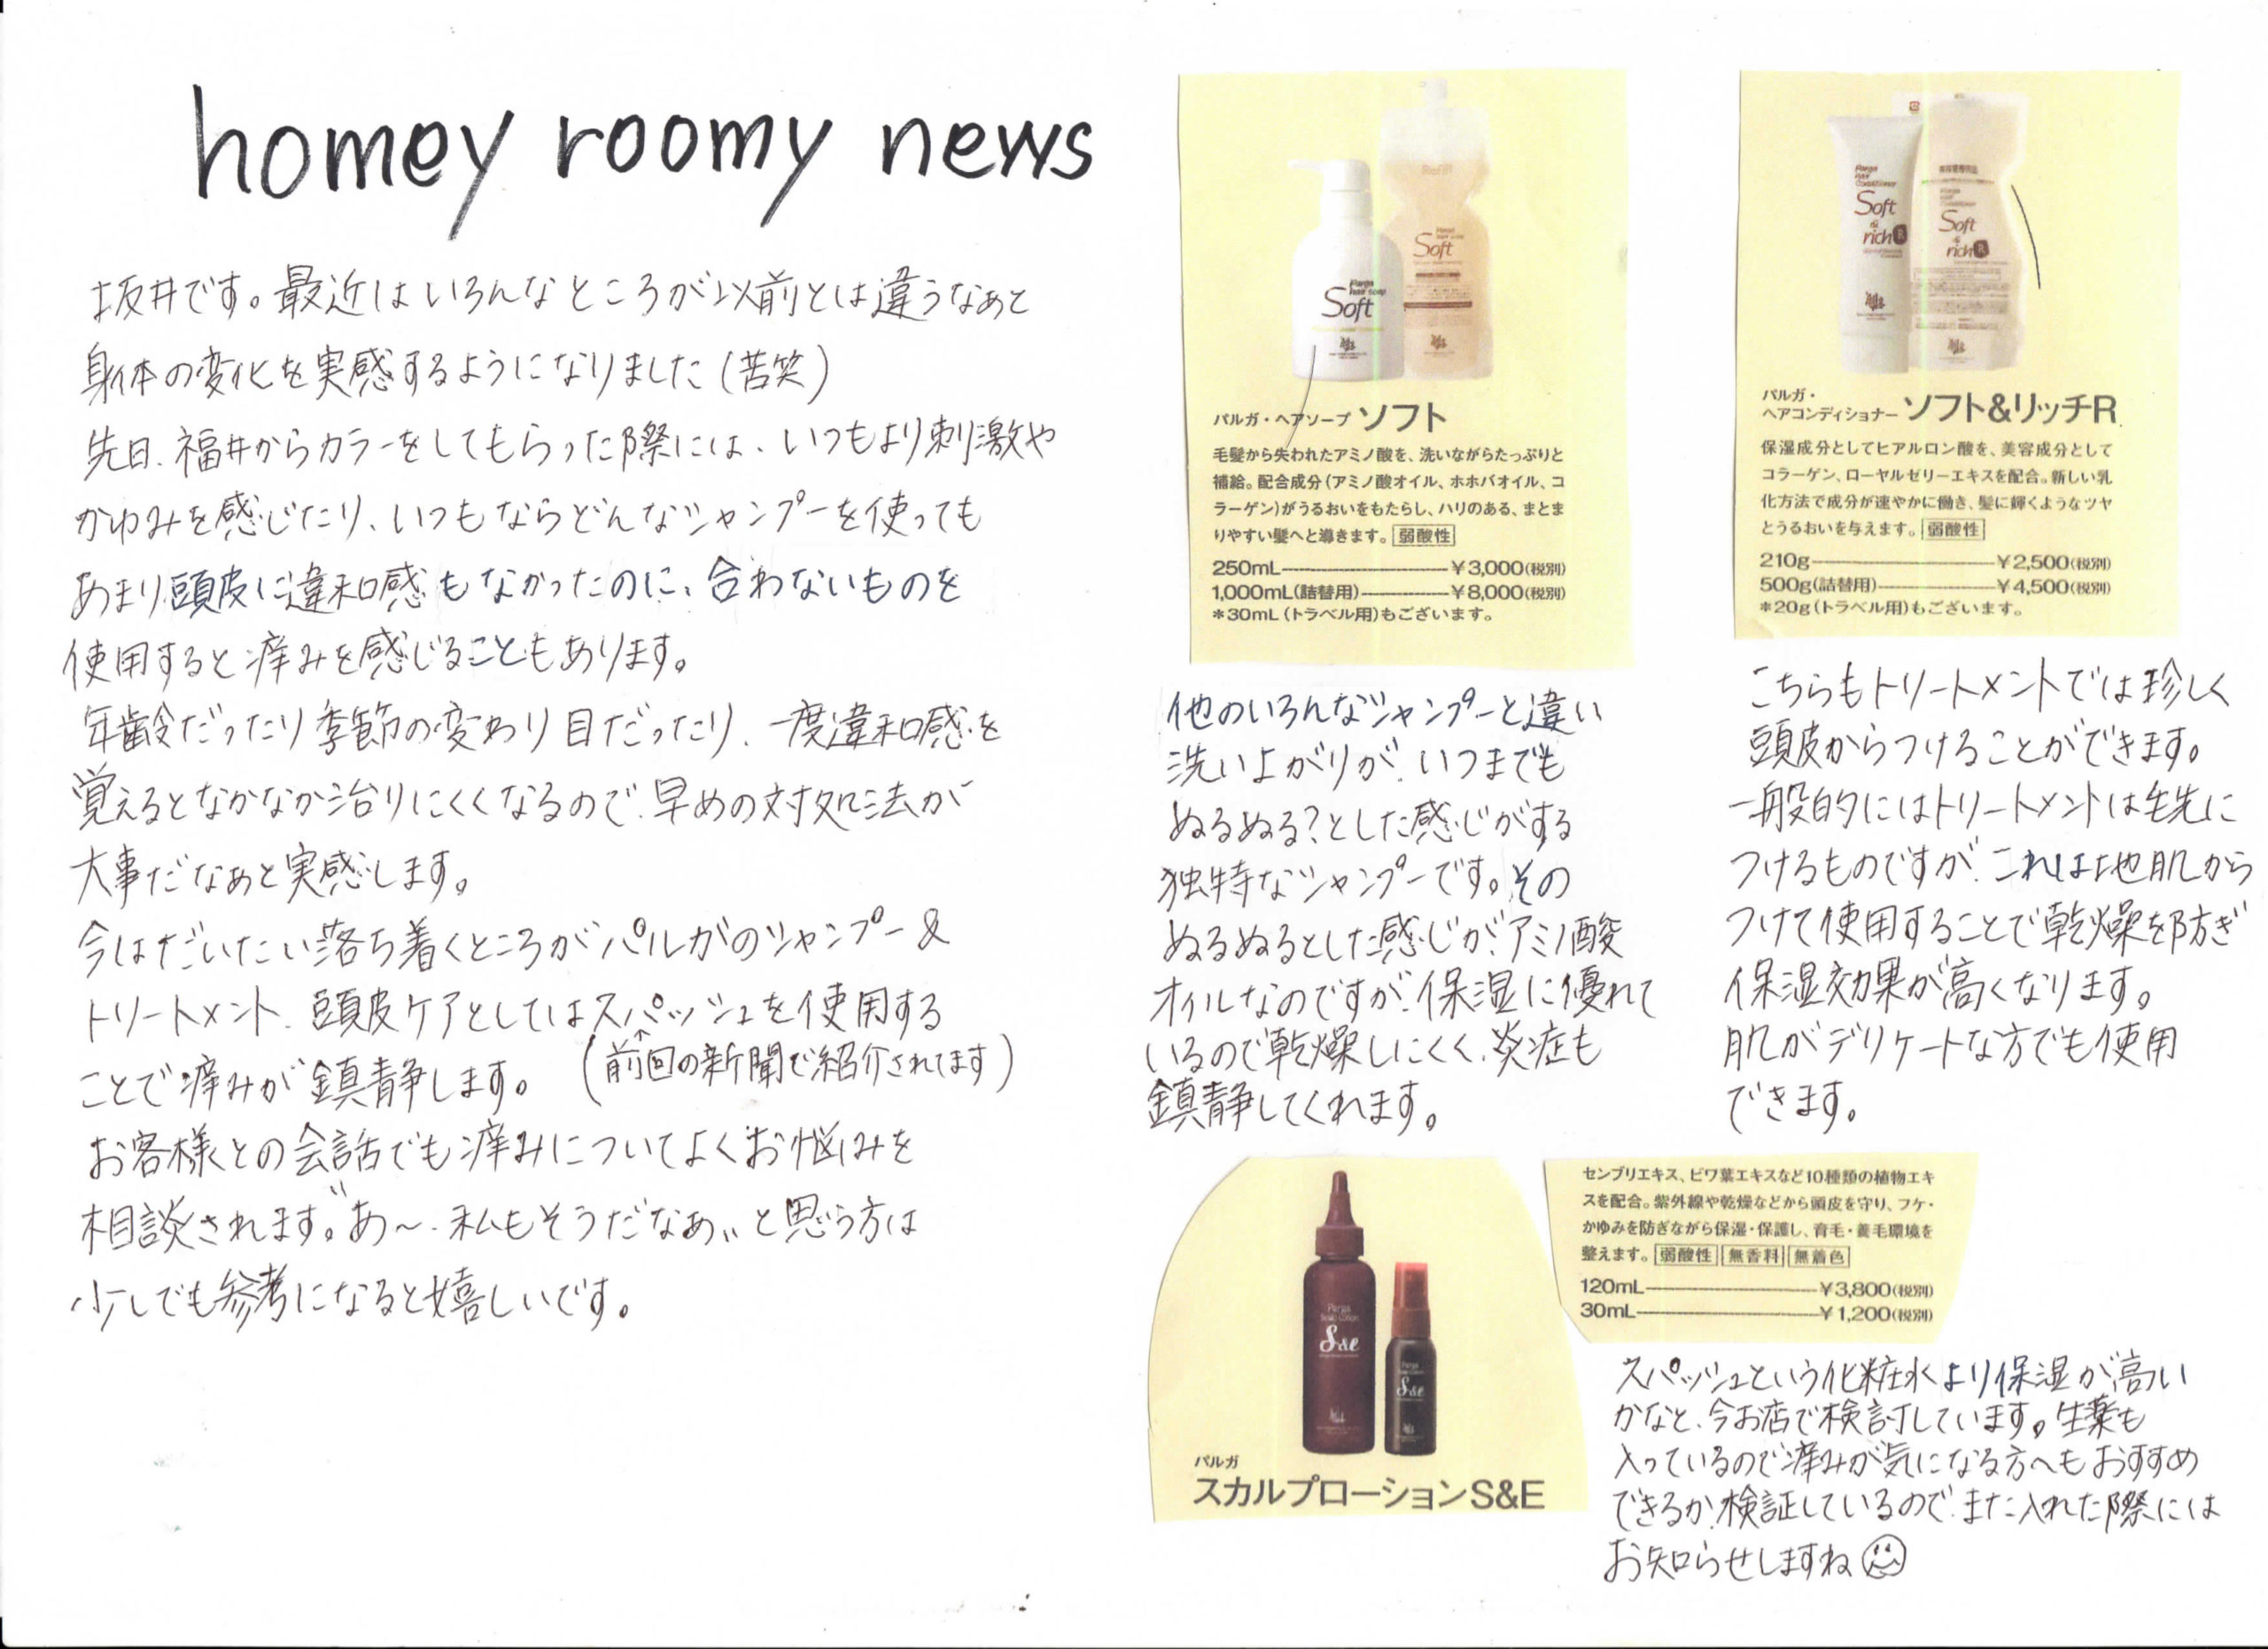 homey roomy news
坂井です。最近はいろんなところが以前とは違うなぁと
身体の変化を実感するようになりました(苦笑)
先日、福井からカラーをしてもらった際には、いつもより刺激や
かゆみを感じたり、いつもならどんなシャンプーを使っても
あまり頭皮に違和感もなかったのに、合わないものを
使用すると痒みを感じることもあります。
年齢だったり季節の変わり目だったり、一度違和感を
覚えるとなかなか治りにくくなるので、早めの対処法が
大事だなぁと実感します。
今はだいたい落ち着くところがパルガのシャンプー&
トリートメント、頭皮ケアとしてはスパッシュを使用する
ことで痒みが鎮静します。(前回の新聞で紹介されてます)
お客様との会話でも痒みについてよくお悩みを
相談されます。"あ〜、私もそうだなぁ"と思う方は
少しでも参考になると嬉しいです。
Refill
Parga
hair soap
Soft
Soft
パルガ・ヘアソープ ソフト
毛髪から失われたアミノ酸を、洗いながらたっぷりと
補給。配合成分(アミノ酸オイル、ホホバオイル、コ
ラーゲン)がうるおいをもたらし、ハリのある、まとま
りやすい髪へと導きます。弱酸性
250mL ¥3,000(税別)
1,000mL(詰替用) ¥8,000(税別)
*30mL(トラベル用)もございます。
他のいろんなシャンプーと違い
洗いよがりが、いつまでも
ぬるぬる?とした感じがする
独特なシャンプーです。その
ぬるぬるとした感じが、アミノ酸
オイルなのですが、保湿に優れて
いるので乾燥しにくく、炎症も
鎮静してくれます。
Parga
Hair
Conditioner
Soft
&
rich R
Soft
&
rich R
パルガ・
ヘアコンディショナー ソフト&リッチR
保湿成分としてヒアルロン酸を、美容成分として
コラーゲン、ローヤルゼリーエキスを配合。新しい乳
化方法で成分が速やかに働き、髪に輝くようなツヤ
とうるおいを与えます。弱酸性
210g ¥2,500(税別)
500g(詰替用) ¥4,500(税別)
*20g(トラベル用)もございます。
こちらもトリートメントでは珍しく
頭皮からつけることができます。
一般的にはトリートメントは毛先に
つけるものですが、これは地肌から
つけて使用することで乾燥を防ぎ
保湿効果が高くなります。
肌がデリケートな方でも使用
できます。
Parga
Scalp Lotion
S&e
Parga
S&e
パルガ
スカルプローションS&E
センブリエキス、ビワ葉エキスなど10種類の植物エキ
スを配合。紫外線や乾燥などから頭皮を守り、フケ・
かゆみを防ぎながら保湿・保護し、育毛・養毛環境を
整えます。弱酸性 無香料 無着色
120mL ¥3,800(税別)
30mL ¥1,200(税別)
スパッシュという化粧水より保湿が高い
かなと、今お店で検討しています。生薬も
入っているので痒みが気になる方へもおすすめ
できるか、検証しているので、また入れた際には
お知らせしますね